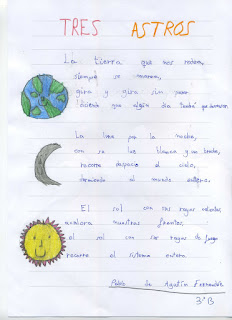 TRES ASTROS
La tierra que nos rodea,
siempre se marea,
gira y gira sin parar
que algún día tendrá que
La luna por la noche,
con su
recorre despacio el cielo,
durmiendo al mundo entero.
El sol con sus rayos
acalora nuestras frentes,
el sol con su rayos de fuego
recorre el sistema entero
Pablo de Agustín Fernández
3ºB